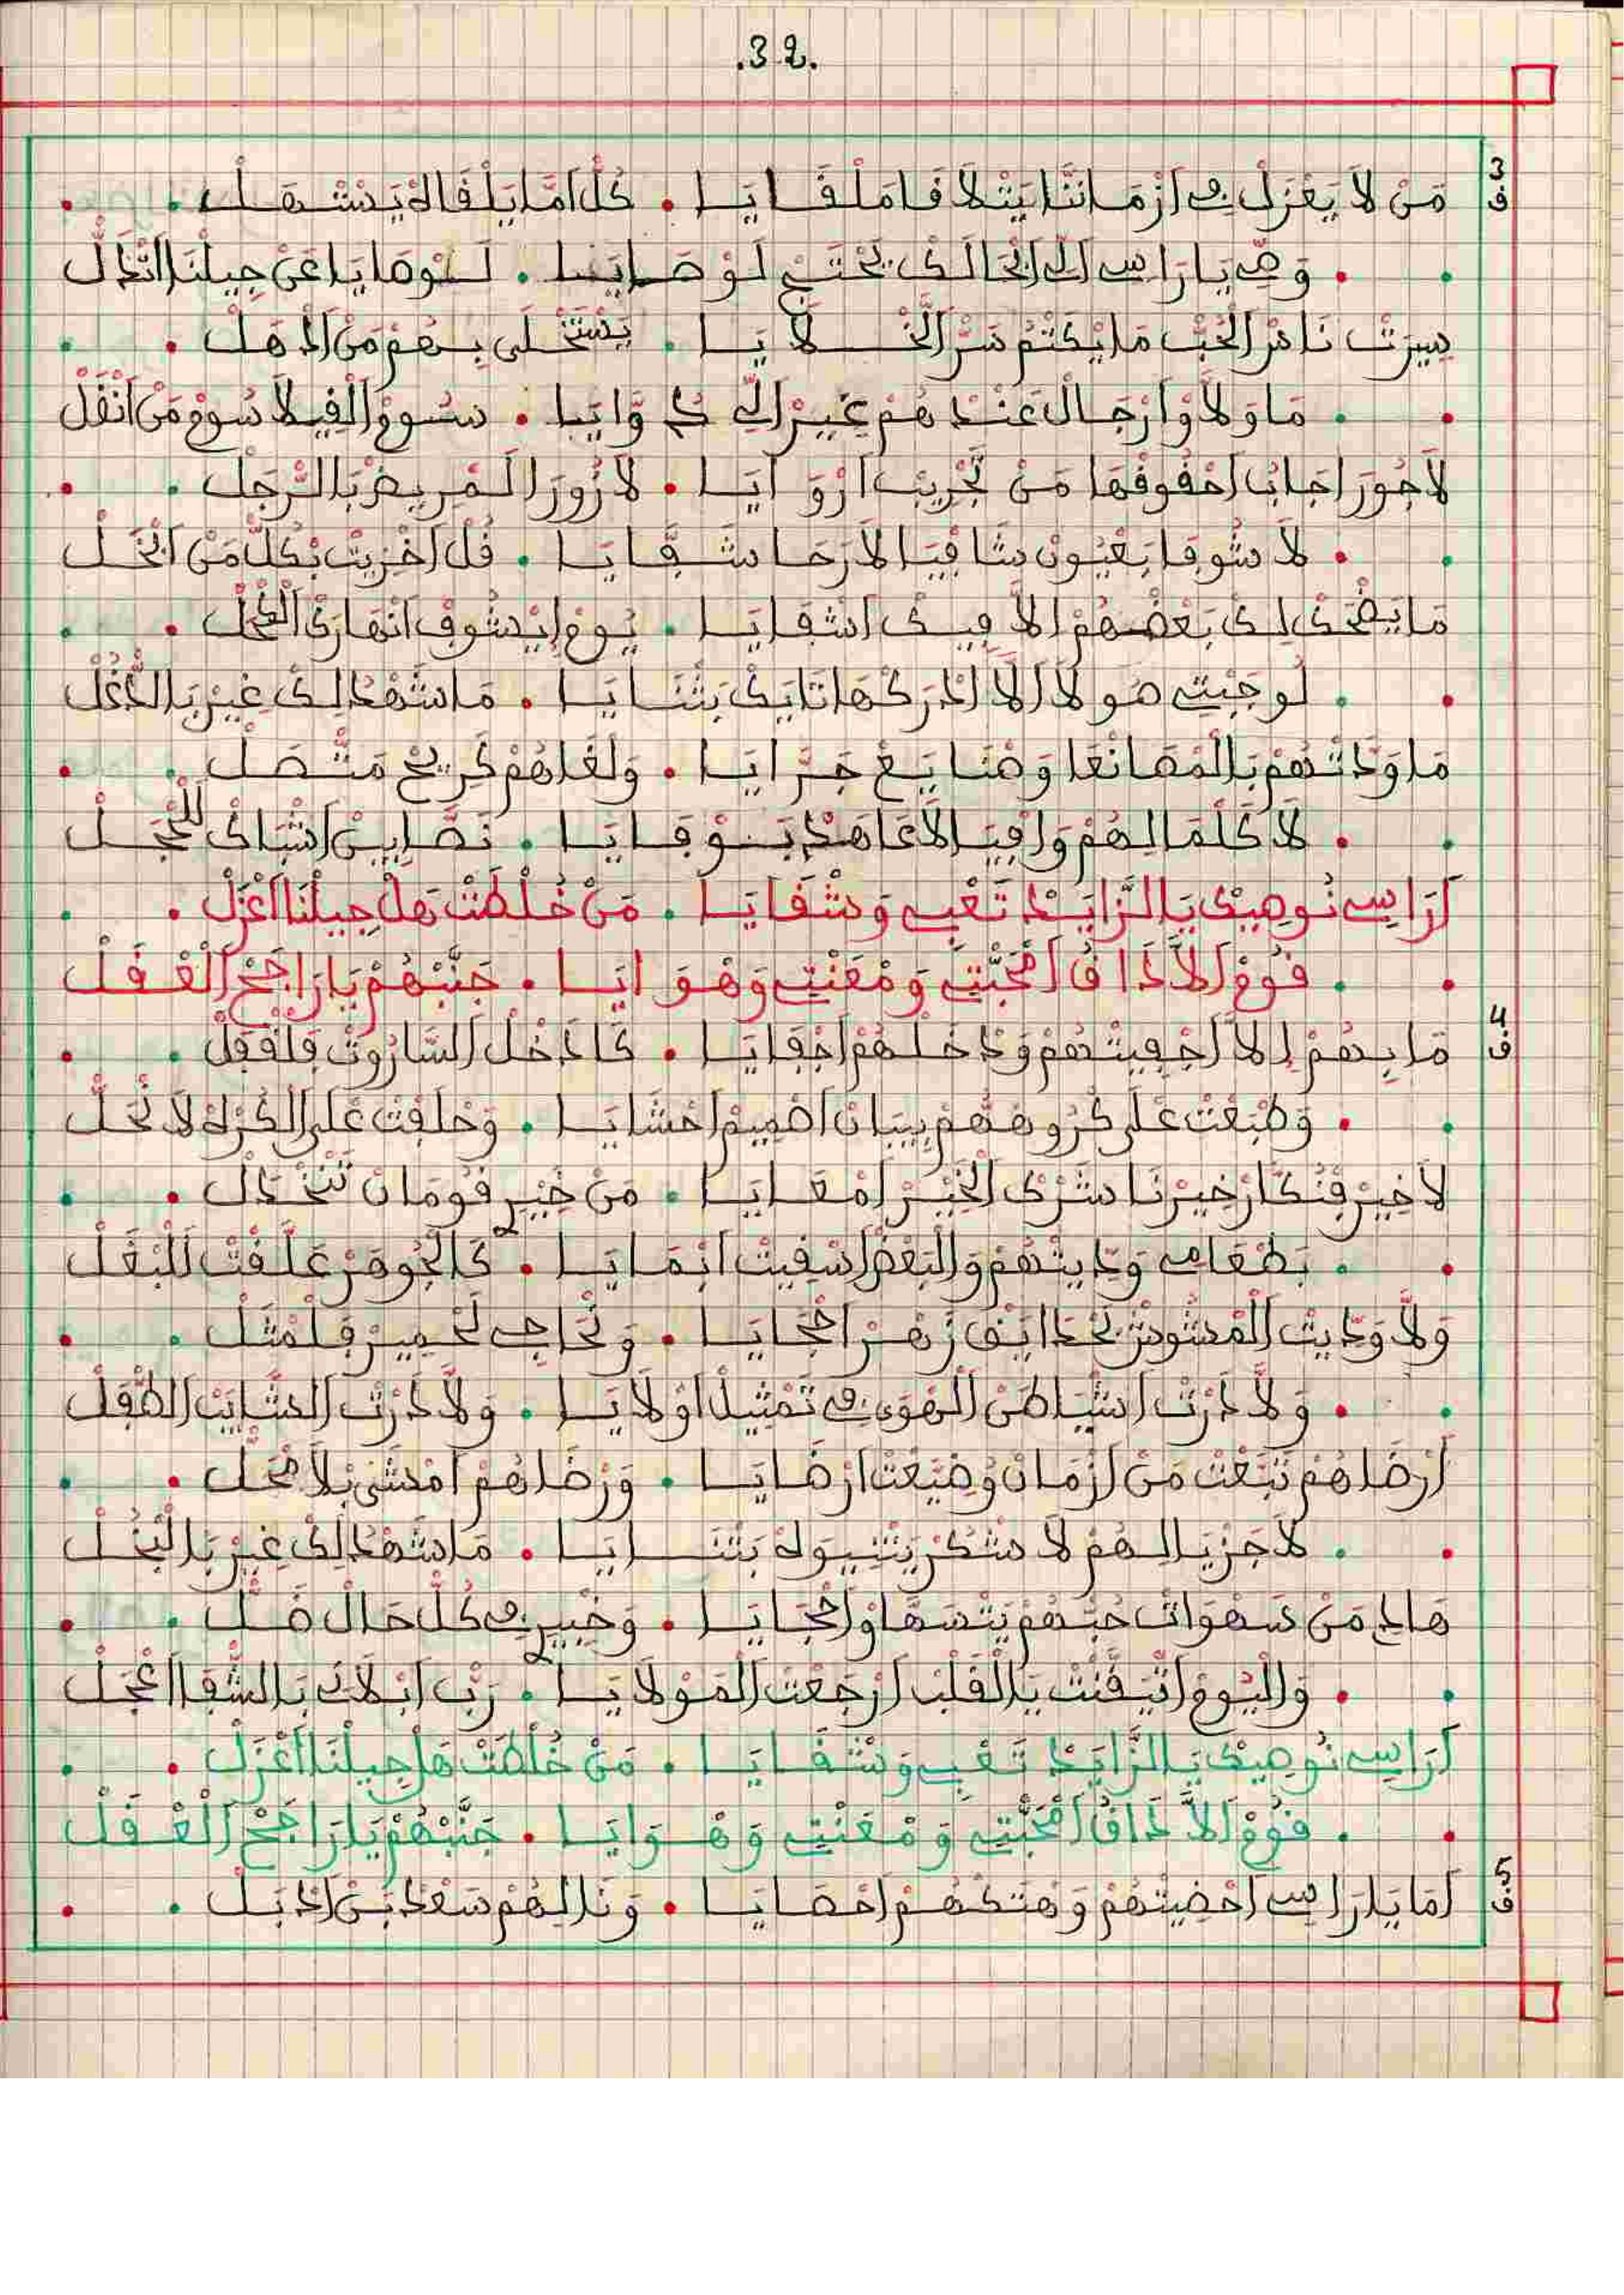 .32.
3 ف
مَنْ لَا يَعْزَلْ فِي اَزْمَاننَا يَتْلَاقَا مَلْقَايَا . كُلّْ اَمَّا يَلْقَاهْ يَسْهَلْ
وَصِّي يَا رَاسِي لَوْصَايَا . لَوصَايَا عَنْ جِيلْنَا
سِيرَتْ نَاسْ الْحُبّْ مَا يَكْتَمْ سَرّْ الْخْلَايَا . يَسْتَحْلَى بِهُمْ مَنْ
مَا وَلَّاوْ اَرْجَالْ عَنْدهُمْ غِيرْ اَلِّي كُوَّايَا . سُوعْ الْفِيلَا سُوعْ مَنْ اَنْقَلْ
لَا جُورَ اجَابُ احْقُوقْهَا مَنْ تَجْرِيبْ اَرْوَايَا . لَا زُورَ الْمْرِيضْ بَالرّْجَلْ
لَا شُوفَا بَعْيُونْ شَافْيَا لَارْحَا شَفَّايَا . قُلْ اَخْزِيتْ بْكُلّْ مَنْ اَبْخَلْ
مَا يَضْحَكْ لِكْ بَعْضْهُمْ اِلَّا فِيكْ اَشْفَايَا . يُومْ اِيشُوفْ اَنْهَارَكْ
لُو جِيتِ هَوْلَا بَثْنَايَا . مَا شَهْدُ لِكْ غِيرْ بَالدّْغَلْ
مَا وَدَّتْهُمْ بَالْمْصَانْعَا وَصْنَايَعْ جَرَّايَا . وَلْقَاهُمْ مَتّْصَلْ
لَا كَلْمَا لِهُمْ وَافْيَا لَا عَاهَدْ بَوْفَايَا . نَصَّابِينْ اَشْبَاكْ لَلْحْجَلْ
اَرَاسِي نُوصِيكْ يَا الزَّايَدْ تَعْبِي وَشْقَايَا . مَنْ خُلْطَتْ هَلْ جِيلْنَا اَعْزَلْ
قُومْ اَلَّا ذَاقُ اَمْحَبّْتِي وَمْغَنْتِي وَهْوَايَا . جَنَّبْهُمْ يَا رَاجَحْ الْعْقَلْ
4 ف
مَا بِهُمْ اِلَّا اَجْفِيتْهُمْ وَدْخَلْهُمْ اَجْفَايَا . كَادْخَلْ السَّارُوتْ فَلْقْفَلْ
وَطْبَعْتْ عْلَى كُرُوهْهُمْ بِيبَانْ اَصْمِيمْ اَحْشَايَا . وَحْلَفْتْ عْلَى الْكُرْهْ لَا نْحَلّْ
لَا خِيرْ فْنُكَّارْ خِيرْنَا سَرّْكْ الْخِيرْ اَمْعَايَا . مَنْ خِيرِ قُومَانْ تَنْخْدَلْ
بَطْعَامِي وَدِّيتْهُمْ وَالْبَعْضْ اَسْقِيتْ اَنْمَايَا . كَالْجُوهَرْ عَلَّقْتْ لَلْبْغَلْ
وَلَّا وَدِّيتْ الْمْشُوشْ بَحْدَايَقْ زَهْرْ اَحْجَايَا . وَنْحَاجِي لَحْمِيرْ فَلْمْثَلْ
وَلَّا دَرْتْ اَشْيَاطَنْ الْهْوَى فِي تَمْثِيلْ اَوْلَايَا . وَلَّا دَرْتْ الشَّايَبْ الطّْفَلْ
اَرْضَاهُمْ تَبَّعْتْ مَنْ اَزْمَانْ وُضِيَّعْتْ اَرْضَايَا . وَرْضَاهُمْ اَمْشَى بْلَا
لَا جَزْيَا لِهُمْ لَا شُكْرْ يَثْنِيوَهْ بَثْنَايَا . مَا شَهْدُ لِكْ غِيرْ بَالْبْخَلْ
هَادِ مَنْ سَهْوَاتْ حُبّْهُمْ يَنْسَهَاوْ اَحْجَايَا . وَخْبِيرِي فِي كُلّْ حَالْ ضَلّْ
وَالْيُومْ اَتْيَقَّنْتْ يَا الْقَلْبْ اَرْجَعْتْ الْمَوْلَايَا . رَبّْ اَبْلَاكْ بَالشّْفَا اَعْجَلْ
اَرَاسِي نُوصِيكْ يَا الزَّايَدْ تَعْبِي وَشْقَايَا . مَنْ خُلْطَتْ هَلْ جِيلْنَا اَعْزَلْ
قُومْ اَلَّا ذَاقُ اَمْحَبّْتِي وَمْغَنْتِي وَهْوَايَا . جَنَّبْهُمْ يَا رَاجَحْ الْعْقَلْ
5 ف
اَمَا يَا رَاسِي اَحْضِيتْهُمْ وَهْتَكْهُمْ اَحْصَايَا . وَنَا لِهُمْ سَعْدْ بَنْ اَدْبَلْ